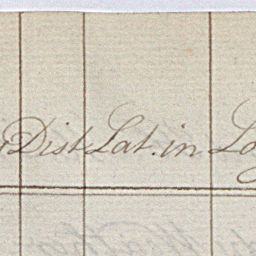 Dist Lat. in